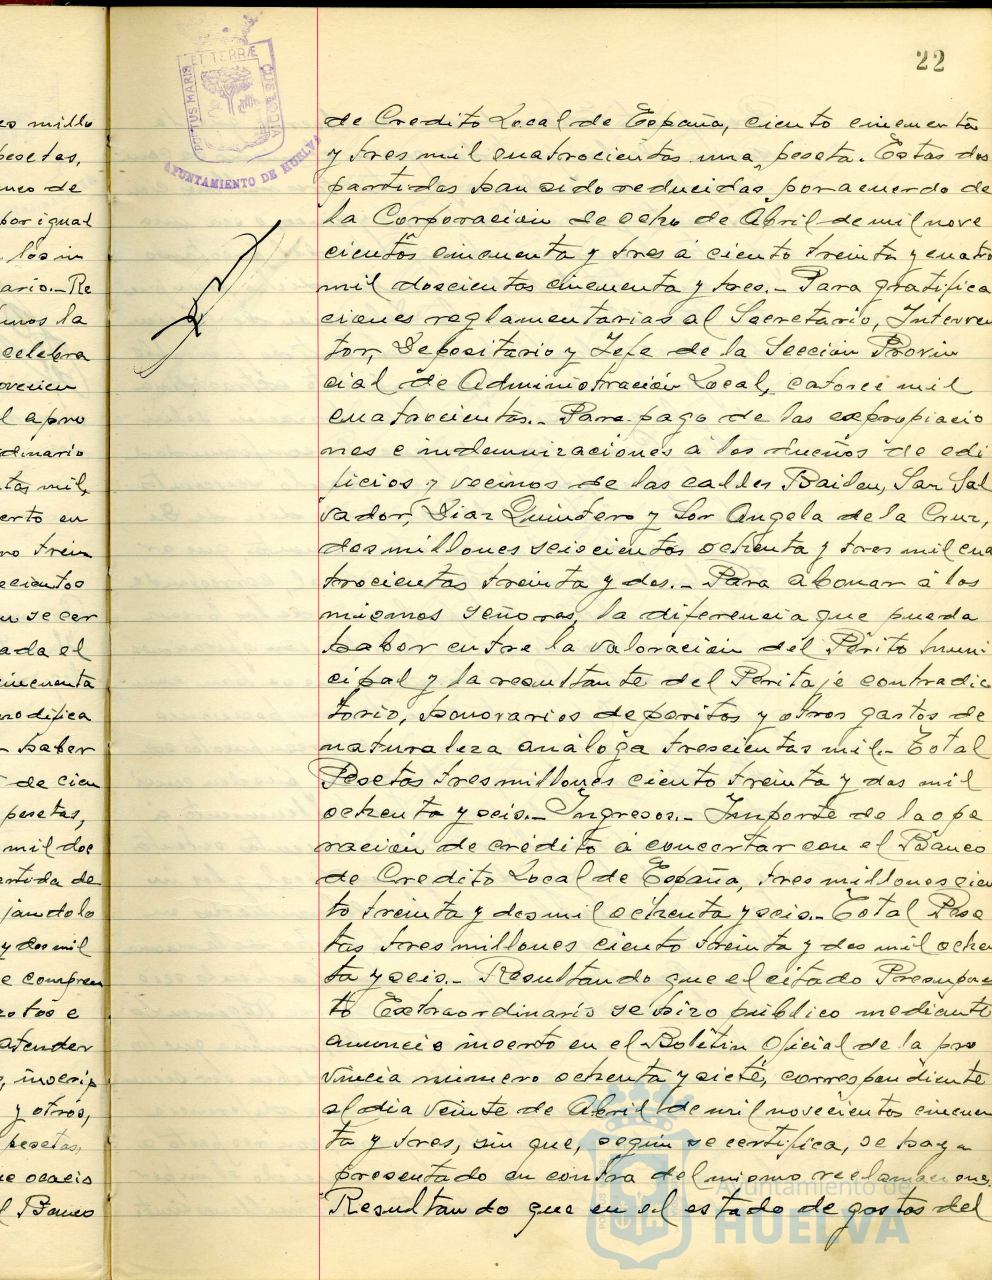 22
PORTUS MARIS
ET TERRÆ
CUSTODIA
AYUNTAMIENTO DE HUELVA
millo
pesetas,
nco de
por igual
los in
ario.- Re
mos la
celebra
l apro
dinario
tas mil,
erto en
ro trein
ecientos
u se cer
ada el
cincuenta
modifica
- haber
de cien
pesetas,
mil dos
artida de
jandolo
y dos mil
e compren
atender
inscrip
y otros,
pesetas,
l Banco
de Credito Local de España, ciento cincuenta
y tres mil cuatrocientas una, peseta. Estas dos
partidas han sido reducidas, por acuerdo de
la Corporación de ocho de Abril de mil nove
cientos cincuenta y tres á ciento treinta y cuatro
mil doscientas cincuenta y tres.- Para gratifica
ciones reglamentarias al Secretario, Interven
tor, Depositario y Jefe de la Sección Provin
cial de Administración Local, catorce mil
cuatrocientas.- Para pago de las expropiacio
nes e indemnizaciones á los dueños de edi
ficios y vecinos de las calles Bailen, San Sal
vador, Diaz Quintero y Sor Angela de la Cruz,
dos millones seiscientas ochenta y tres mil cua
trocientas treinta y dos.- Para abonar á los
mismos señores, la diferencia que pueda
haber entre la valoración del Périto Muni
cipal y la resultante del Peritaje contradic
torio, honorarios de peritos y otros gastos de
naturaleza análoga trescientas mil.- Total
Pesetas tres millones ciento treinta y dos mil
ochenta y seis.- Ingresos.- Importe de la ope
ración de crédito á concertar con el Banco
de Credito Local de España, tres millones cien
to treinta y dos mil ochenta y seis.- Total Pese
tas tres millones ciento treinta y dos mil ochen
ta y seis.- Resultando que el citado Presupues
to Extraordinario se hizo público mediante
anuncio inserto en el Boletin Oficial de la pro
vincia número ochenta y siete, correspondiente
al dia veinte de Abril de mil novecientos cincuen
ta y tres, sin que, según se certifica, se haya
presentado en contra del mismo reclamaciones.
Resultando que en el estado de gastos del
Ayuntamiento de
HUELVA